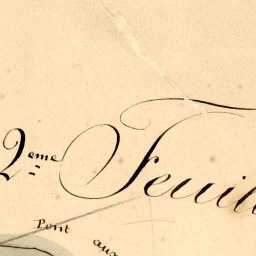 2eme Feuill
Pont aux